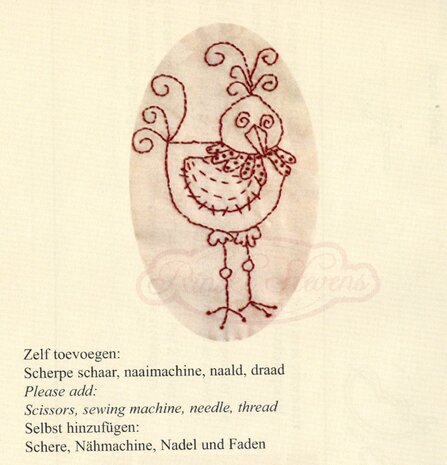 Zelf toevoegen:
Scherpe schaar, naaimachine, naald, draad
Please add:
Scissors, sewing machine, needle, thread
Selbst hinzufügen:
Schere, Nähmachine, Nadel und Faden